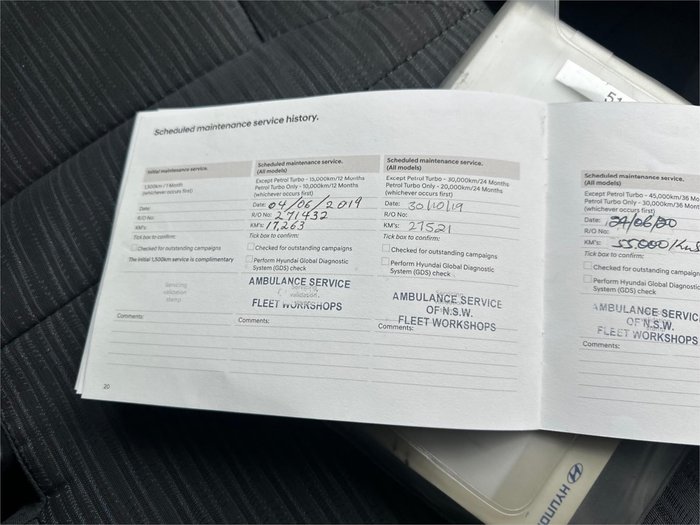 Scheduled maintenance service history.
Initial maintenance service.
1,500km / 1 Month
(whichever occurs first)
Date:
R/O No:
KM's:
Tick box to confirm:
Checked for outstanding campaigns
The initial 1,500km service is complimentary
Servicing
validation
stamp
Comments:
20
Scheduled maintenance service.
(All models)
Except Petrol Turbo - 15,000km/12 Months
Petrol Turbo Only - 10,000km/12 Months
(whichever occurs first)
Date: 04/06/2019
R/O No: 271432
KM's: 17,263
Tick box to confirm:
Checked for outstanding campaigns
Perform Hyundai Global Diagnostic
System (GDS) check
AMBULANCE SERVICE
validation
FLEET WORKSHOPS
Comments:
Scheduled maintenance service.
(All models)
Except Petrol Turbo - 30,000km/24 Months
Petrol Turbo Only - 20,000km/24 Months
(whichever occurs first)
Date: 30/10/19
R/O No:
KM's: 27521
Tick box to confirm:
Checked for outstanding campaigns
Perform Hyundai Global Diagnostic
System (GDS) check
AMBULANCE SERVICE
OF N.S.W.
FLEET WORKSHOPS
Comments:
Scheduled maintenance service.
(All models)
Except Petrol Turbo - 45,000km/36 Mo
Petrol Turbo Only - 30,000km/36 Mo
(whichever occurs first)
Date:
R/O No:
KM's: 55000/Kms
Tick box to confirm:
Checked for outstanding campaign
Perform Hyundai Global Diagno
System (GDS) check
AMBULANCE SERVIC
OF N.S.W.
FLEET WORKSHOPS
Comments:
51
HYUND